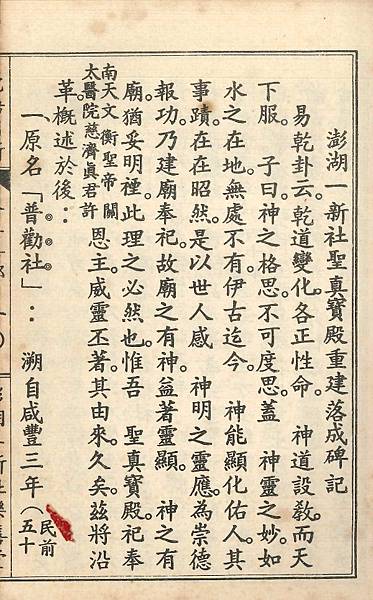 澎湖一新社聖真寶殿重建落成碑記
易乾卦云。乾道變化。各正性命。　神道設教。而天
下服。　子曰。神之格思。不可度思。蓋　神靈之妙。如
水之在地。無處不有。伊古迄今。　神能顯化佑人。其
事蹟。在在昭然。是以世人感　神明之靈應。為崇德
報功。乃建廟奉祀。故廟之有神。益著靈顯。　神之有
廟。猶妥明禋。此理之必然也。惟吾　聖真寶殿。祀奉
南天文衡聖帝關
太醫院慈濟真君許
恩主。威靈丕著。其由來久矣。茲將沿
革。概述於後：
一原名「普勸社」：　溯自咸豐三年（
民前
五十